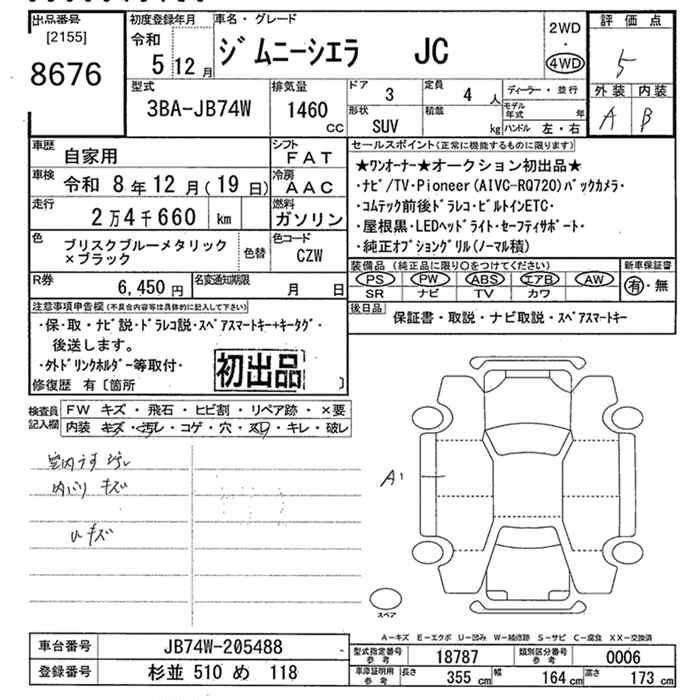 出品番号
[2155]
8676
初度登録年月
令和
5 12 月
車名・グレード
ジムニーシエラ JC
2WD
・
4WD
評価点
5
外装 内装
A B
型式
3BA-JB74W
排気量
1460
cc
ドア
3
定員
4 人
形状
SUV
積載
kg
ディーラー・並行
モデル年式 年
ハンドル 左・右
車歴
自家用
シフト
FAT
車検
令和 8年12月(19日)
冷房
AAC
走行
2万4千660 km
燃料
ガソリン
色
ブリスクブルーメタリック
×ブラック
色替
色コード
CZW
R券
6,450円
名変通知期限
月 日
セールスポイント(正常に機能するものに限ります)
★ワンオーナー★オークション初出品★
・ナビ/TV・Pioneer(AIVC-RQ720)バックカメラ・
・コムテック前後ドラレコ・ビルトインETC・
・屋根黒・LEDヘッドライト・セーフティサポート・
・純正オプショングリル(ノーマル積)
装備品(純正品に限り○をつけてください)
PS PW ABS エアB AW
SR ナビ TV カワ
新車保証書
有・無
後日品
保証書・取説・ナビ取説・スペアスマートキー
注意事項申告欄(不具合内容等は具体的に記入して下さい)
・保・取・ナビ説・ドラレコ説・スペアスマートキー+キータグ・
後送します。
・外ドリンクホルダー等取付・
初出品
修復歴 有〔箇所 〕
検査員
記入欄
FW キズ・飛石・ヒビ割・リペア跡・×要
内装 キズ・汚レ・コゲ・穴・スレ・キレ・破レ
室内うす汚レ
内バリキズ
Uキズ
A1
スペア
A-キズ E-エクボ U-凹み W-補修跡 S-サビ C-腐食 XX-交換済
車台番号
JB74W-205488
登録番号
杉並 510 め 118
型式指定番号
参考
18787
類別区分番号
参考
0006
車庫証明用
参考
長さ 355 cm 幅 164 cm 高さ 173 cm